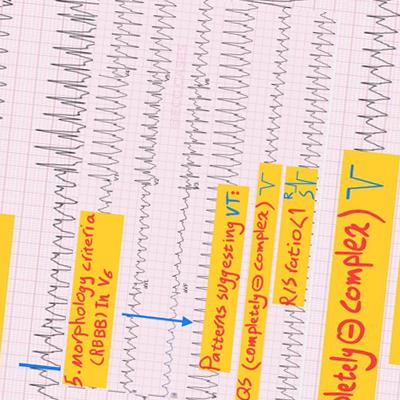 5. morphology criteria
(RBBB) In V6
Patterns suggesting VT:
QS (completely ⊖ complex)
R/S ratio<1 R
S
pletely ⊖ complex)